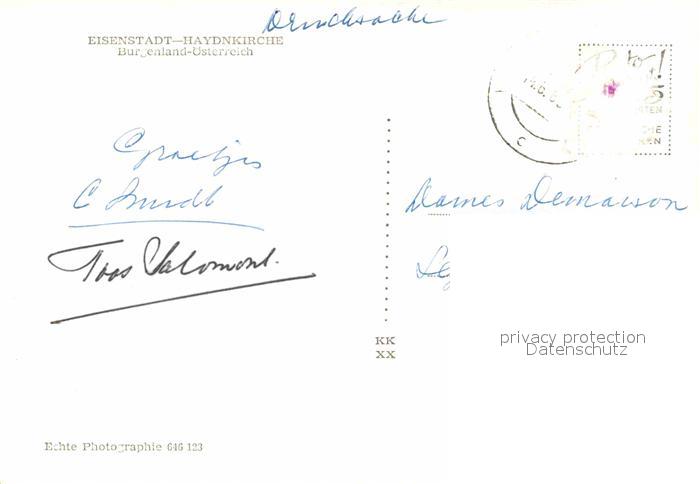 Drucksache
EISENSTADT—HAYDNKIRCHE
Burgenland-Österreich
Groetjes
Toos Salomons.
Dames Demaison
KK
XX
privacy protection
Datenschutz
Echte Photographie 646 123